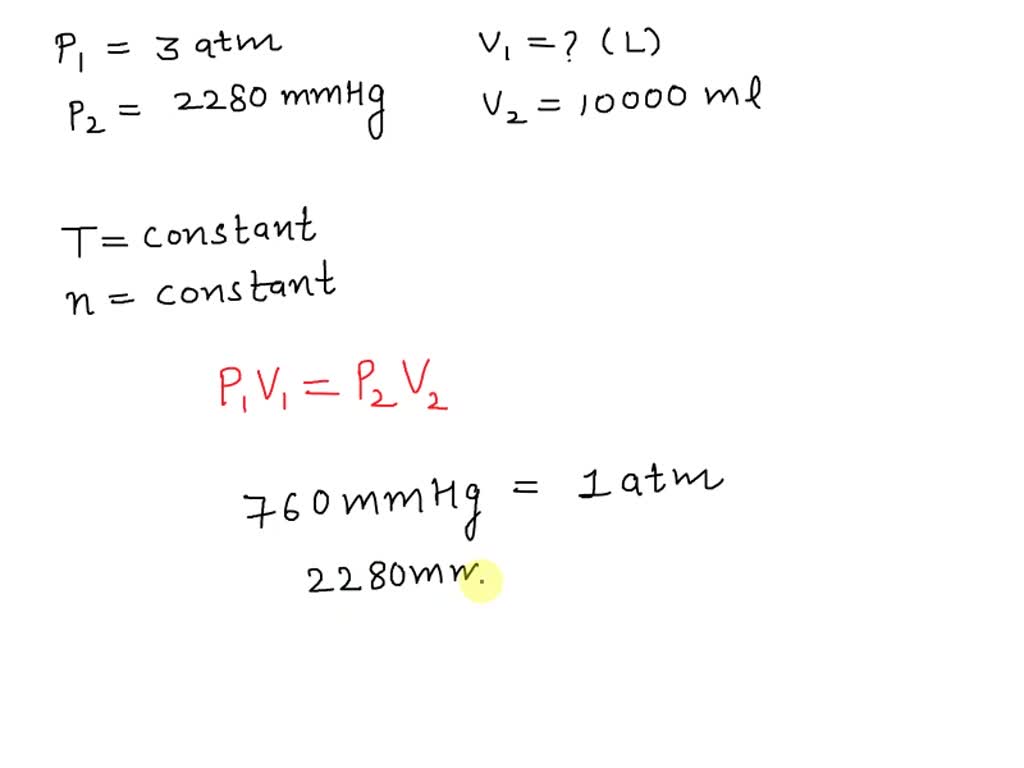 P₁ = 3 atm V₁ = ? (L)
P₂ = 2280 mmHg V₂ = 10000 ml
T = constant
n = constant
P₁V₁ = P₂V₂
760 mmHg = 1 atm
2280 mm